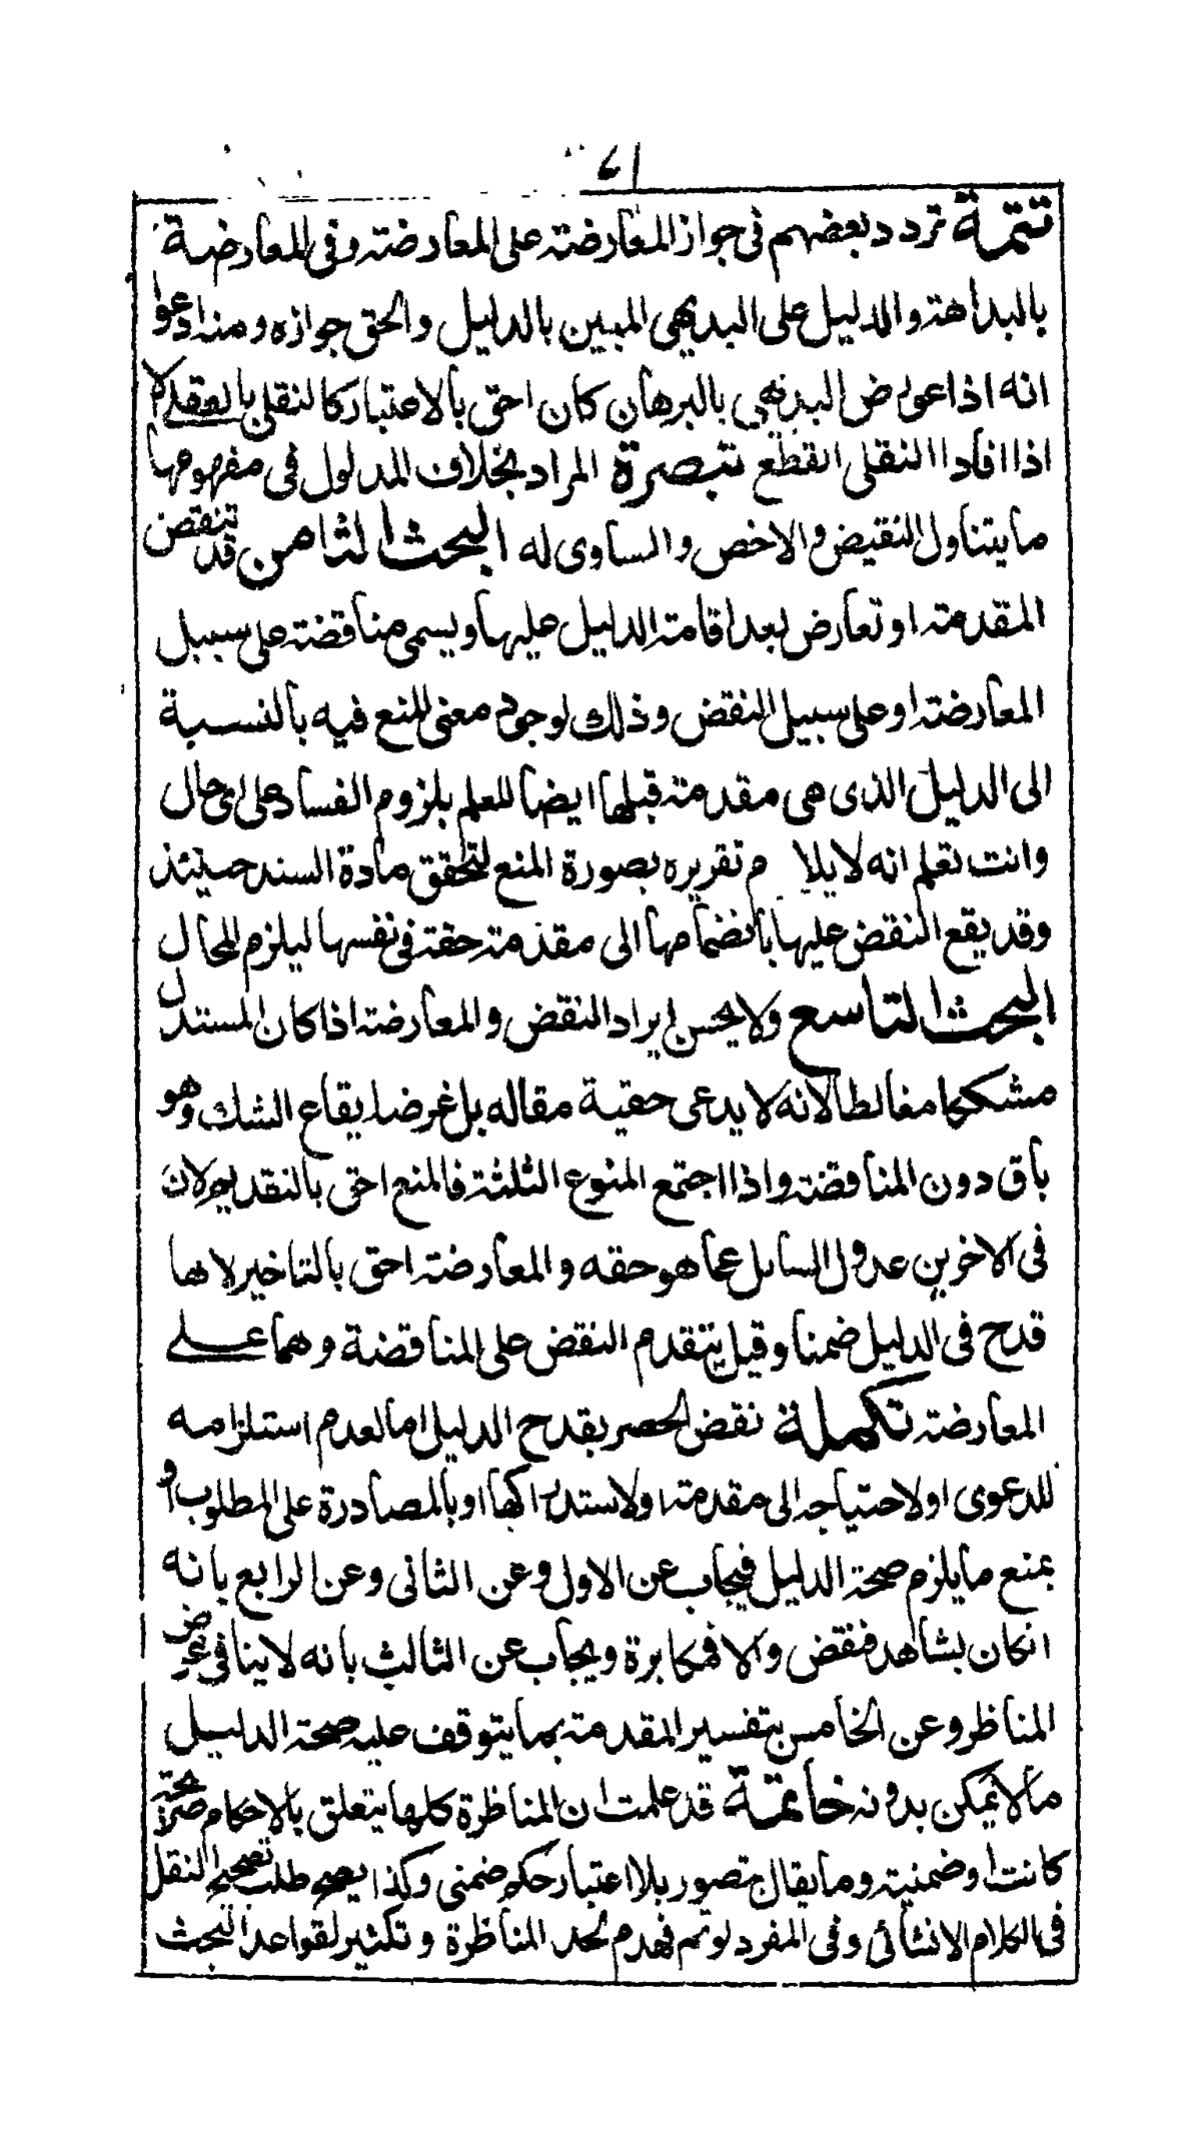 تتمة تردد بعضهم فى جواز المعارضة على المعارضة وفى المعارضة
بالبداهة والدليل على البديهى المبين بالدليل والحق جوازه ومنه ادعوا
انه اذا عورض البديهى بالبرهان كان احق بالاعتبار كالنقلى بالعقلى لا
اذا افاد النقلى القطع تبصرة المراد بخلاف المدلول فى مفهومها
ما يتناول النقيض والاخص والمساوى له البحث الثامن قد تنقض
المقدمة او تعارض بعد اقامة الدليل عليها ويسمى مناقضة على سبيل
المعارضة او على سبيل النقض وذلك لوجود معنى المنع فيه بالنسبة
الى الدليل الذى هى مقدمة قبلها ايضا للعلم بلزوم الفساد على اى حال
وانت تعلم انه لا يلا م تقريره بصورة المنع لتحقق مادة السند حينئذ
وقد يقع النقض عليها بانضمامها الى مقدمة حقة فى نفسها ليلزم المحال
البحث التاسع ولا يحسن ايراد النقض والمعارضة اذا كان المستدل
مشككا مغالطا لانه لا يدعى حقية مقاله بل غرضه ايقاع الشك وهو
باق دون المناقضة واذا اجتمع المنوع الثلثة فالمنع احق بالتقديم لان
فى الاخرين عدول السائل عما هو حقه والمعارضة احق بالتاخير لانها
قدح فى الدليل ضمنا وقيل يتقدم النقض على المناقضة وهما على
المعارضة تكملة نقض الحصر بقدح الدليل اما لعدم استلزامه
للدعوى او لاحتياجه الى مقدمة او لاستدراكها او بالمصادرة على المطلوب او
بمنع ما يلزم صحة الدليل فيجاب عن الاول وعن الثانى وعن الرابع بانه
انكان بشاهد فنقض والا فمكابرة ويجاب عن الثالث بانه لا ينافى غرض
المناظر وعن الخامس بتفسير المقدمة بما يتوقف عليه صحة الدليل
ما لا يمكن بدونه خاتمة قد علمت ان المناظرة كلها يتعلق بالاحكام صريحة
كانت او ضمنية وما يقال متصور بلا اعتبار حكم ضمنى وكذا يصح طلب تصحيح النقل
فى الكلام الانشائى وفى المفرد لو تم فهدم لحد المناظرة وتكثير لقواعد البحث